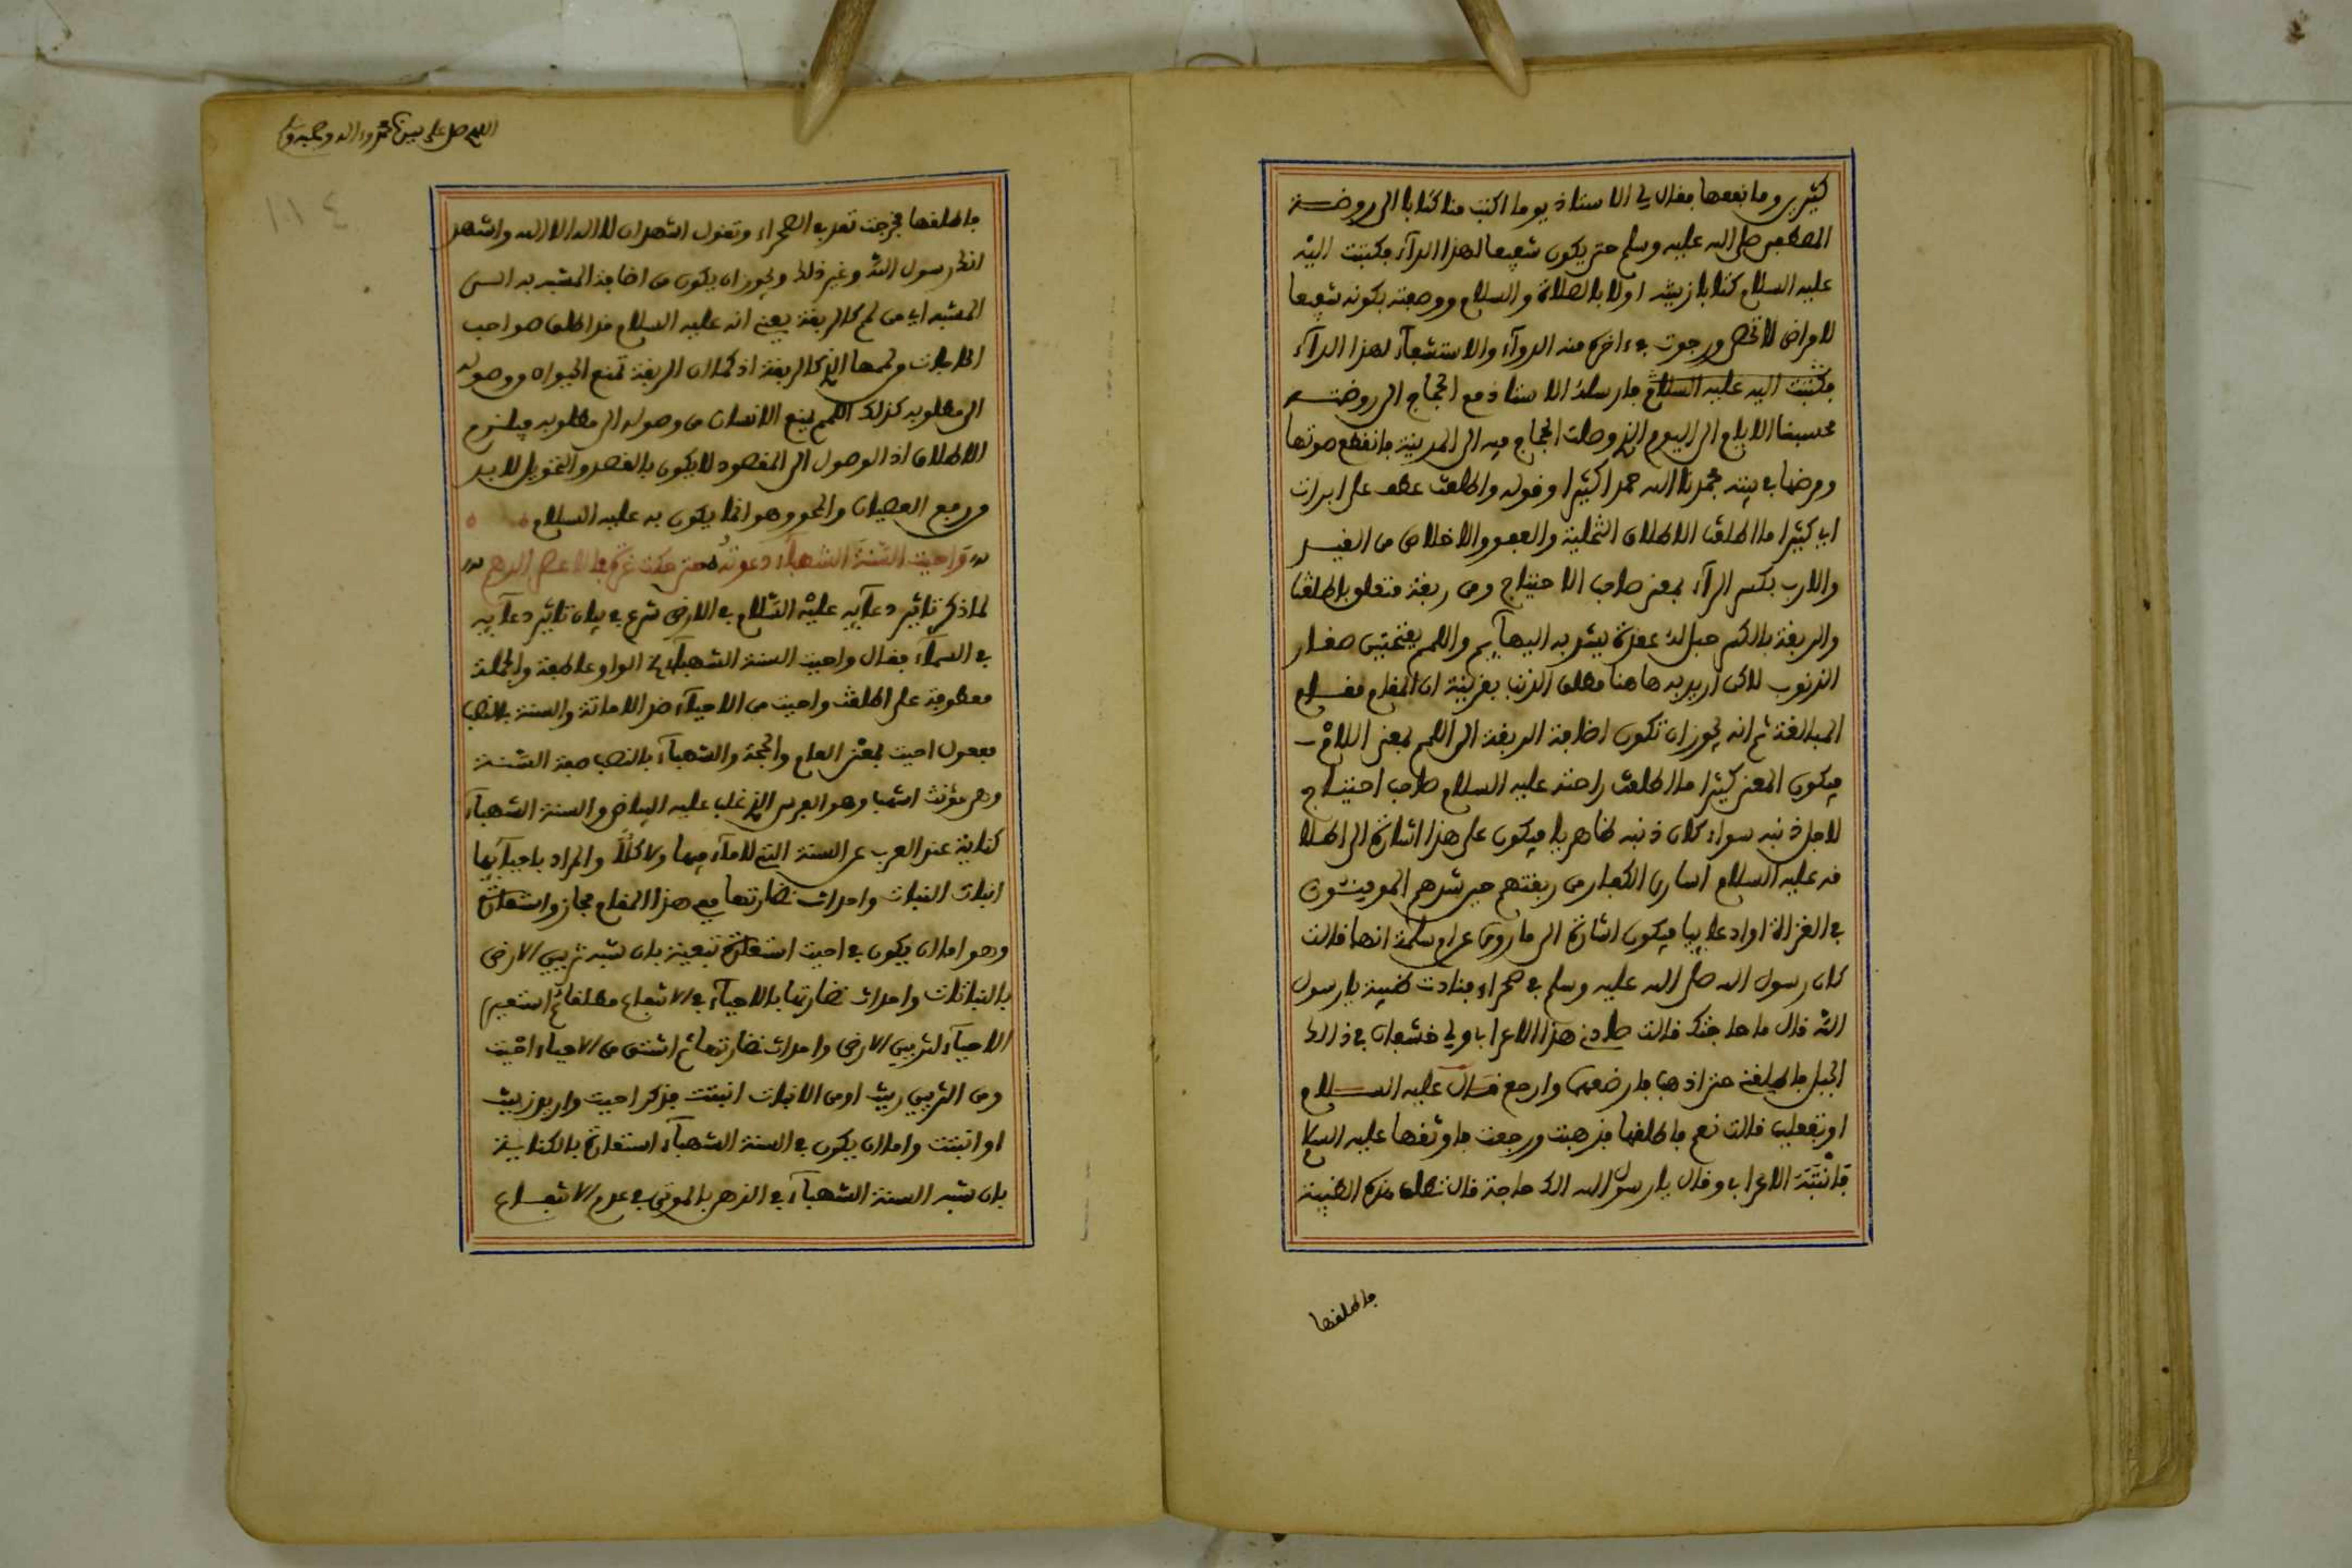 كثيرين وما نفعها فقال لي الاستاذ يوما اكتب منا كتابا الى روضة
المصطفى صلى الله عليه وسلم حتى يكون شفيعا لهذا الدآء فكتبت اليه
عليه السلام كتابا زينته اولا بالصلاة والسلام ووصفته بكونه شفيعا
للامراض لا تحصى ورجوت في ءاخره منه الدوآء والاستشفآء لهذا الدآء
فكتبت اليه عليه السلام فارسله الاستاذ مع الحجاج الى روضته
فحسبنا الايام الى اليوم الذي وصلت الحجاج فيه الى المدينة فانقطع صوتها
ومرضها في بيته فحمدنا الله حمدا كثيرا وقوله واطلقت عطف على ابرات
اي كثيرا ما اطلقت الاطلاق التخلية والعفو والاخلاص من القيد
والارب بكسر الرآء بمعنى صاحب الاحتياج ومن ربقة متعلق باطلقت
والربقة بالكسر حبل له عقدة يشد به البهآيم واللمم بفتحتين صغار
الذنوب لاكن اريد به هاهنا مطلق الذنب بقرينة ان المقام مقام
المبالغة ثم انه يجوز ان تكون اضافة الربقة الى اللمم بمعنى اللام
فيكون المعنى كثيرا ما اطلقت راحته عليه السلام صاحب احتياج
لاجل ذنبه سواء كان ذنبه ظاهريا فيكون على هذا اشارة الى اطلا
قه عليه السلام اسارى الكفار من ربقتهم حين شدهم المومنون
في الغزاة او ادعاييا فيكون اشارة الى ما روي عن ام سلمة انها قالت
كان رسول الله صلى الله عليه وسلم في صحراء فنادت ظبية يا رسول
الله قال ما حاجتك قالت صادني هذا الاعرابي ولي خشفان في ذالك
الجبل فاطلقني حتى اذهب فارضعهما وارجع فقال عليه السلام
اوتفعلين قالت نعم فاطلقها فذهبت ورجعت فاوثقها عليه السلام
فانتبه الاعرابي وقال يا رسول الله الك حاجة قال تطلق هذه الظبية
فاطلقها
اللهم صل على سيدنا محمد وءاله وصحبه وسلم
١١٤
فاطلقها فخرجت تعدو في الصحراء وتقول اشهد ان لا اله الا الله واشهد
انك رسول الله وغير ذلك ويجوز ان يكون من اضافة المشبه به الى
المشبه اي من لمم كالربقة يعني انه عليه السلام قد اطلق صواحب
الحاجات ولممها الذي كالربقة اذ كما ان الربقة تمنع الحيوان ووصوله
الى مطلوبه كذلك اللمم يمنع الانسان من وصوله الى مطلوبه فيلزم
الاطلاق اذ الوصول الى المقصود لا يكون بالقصد والتخويل لا بد
ورفع العصيان والمحو وهو انما يكون به عليه السلام
واحيت السنة الشهبآء دعوته حتى حكت غرة في الاعصر الدهم
لما ذكر تاثير دعآيه عليه السلام في الارض شرع في بيان تاثير دعآيه
في السمآء فقال واحيت السنة الشهبآء الخ الواو عاطفة والجملة
معطوفة على اطلقت واحيت من الاحيآء ضد الاماتة والسنة بالنصب
مفعول احيت بمعنى العام والحجة والشهبآء بالنصب صفة السنة
وهي مؤنث اشهب وهو الفرس الذي غلب عليه البياض والسنة الشهبآء
كناية عند العرب عن السنة التي لا مآء فيها ولا كلأ والمراد باحيآيها
انبات النبات واحداث نضارتها ففي هذا المقام مجاز واستعارة
وهو اما ان يكون في احيت استعارة تبعية بان شبه تزيين الارض
بالنباتات واحداث نضارتها بالاحيآء في الانتفاع مطلقا ثم استعير
الاحيآء لتزيين الارض واحداث نضارتها ثم اشتق من الاحياء احيت
ومن التزيين زينت او من الانبات انبتت فذكر احيت واريد زينت
او انبتت واما ان يكون في السنة الشهبآء استعارة بالكناية
بان شبه السنة الشهبآء في الذهن بالموتى في عدم الانتفاع